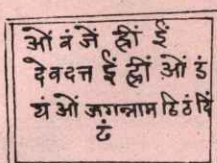 ओं बं जें ह्रीं ईं
देवदत्त ईं ह्रीं ओं डं
यं ओं जगन्नाम ठि ठं ठिं
ठं